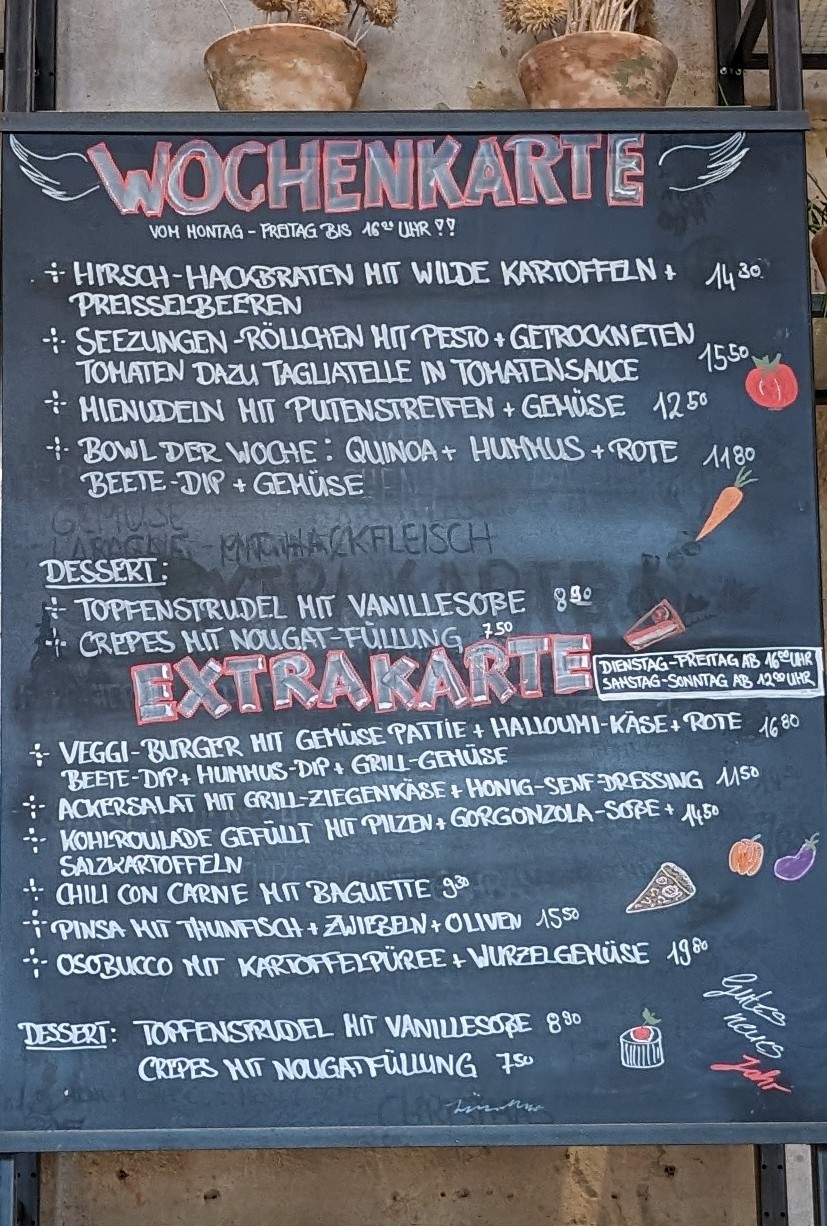 WOCHENKARTE
VOM MONTAG - FREITAG BIS 16⁰⁰ UHR !!
HIRSCH-HACKBRATEN MIT WILDE KARTOFFELN + 14³⁰
PREISSELBEEREN
SEEZUNGEN-RÖLLCHEN MIT PESTO + GETROCKNETEN
TOMATEN DAZU TAGLIATELLE IN TOMATENSAUCE 15⁵⁰
MIENUDELN MIT PUTENSTREIFEN + GEMÜSE 12⁵⁰
BOWL DER WOCHE: QUINOA + HUMMUS + ROTE 11⁸⁰
BEETE-DIP + GEMÜSE
GEMÜSE
HACKFLEISCH
DESSERT:
TOPFENSTRUDEL MIT VANILLESOßE 8⁹⁰
CREPES MIT NOUGAT-FÜLLUNG 7⁵⁰
EXTRAKARTE
DIENSTAG-FREITAG AB 16⁰⁰ UHR
SAMSTAG-SONNTAG AB 12⁰⁰ UHR
VEGGI-BURGER MIT GEMÜSE PATTIE + HALLOUMI-KÄSE + ROTE 16⁸⁰
BEETE-DIP + HUMMUS-DIP + GRILL-GEMÜSE
ACKERSALAT MIT GRILL-ZIEGENKÄSE + HONIG-SENF-DRESSING 11⁵⁰
KOHLROULADE GEFÜLLT MIT PILZEN + GORGONZOLA-SOßE + 14⁵⁰
SALZKARTOFFELN
CHILI CON CARNE MIT BAGUETTE 9³⁰
PINSA MIT THUNFISCH + ZWIEBELN + OLIVEN 15⁵⁰
OSOBUCCO MIT KARTOFFELPÜREE + WURZELGEMÜSE 19⁸⁰
Gutes
neues
Jahr
DESSERT: TOPFENSTRUDEL MIT VANILLESOßE 8⁹⁰
CREPES MIT NOUGATFÜLLUNG 7⁵⁰